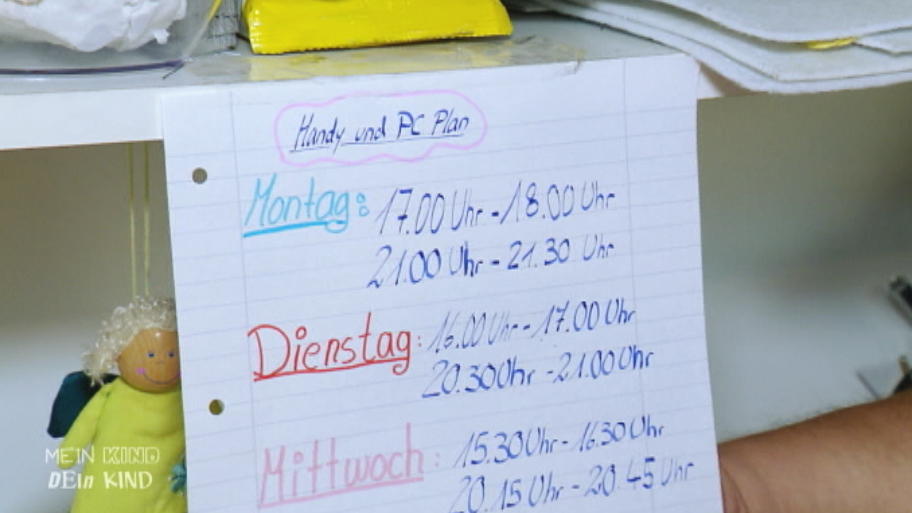 Handy und PC Plan
Montag: 17.00 Uhr - 18.00 Uhr
21.00 Uhr - 21.30 Uhr
Dienstag: 16.00 Uhr - 17.00 Uhr
20.30 Uhr - 21.00 Uhr
Mittwoch: 15.30 Uhr - 16.30 Uhr
20.15 Uhr - 20.45 Uhr
MEIN KIND
DEin KIND